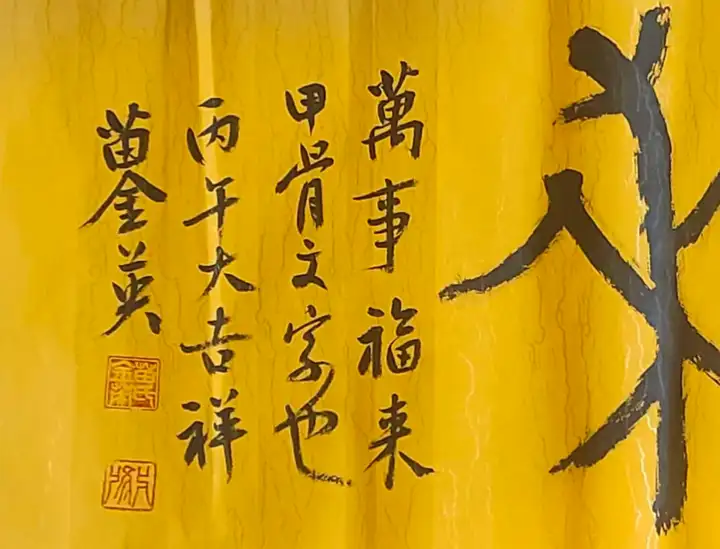 萬事福来
甲骨文字也
丙午大吉祥
苗金英